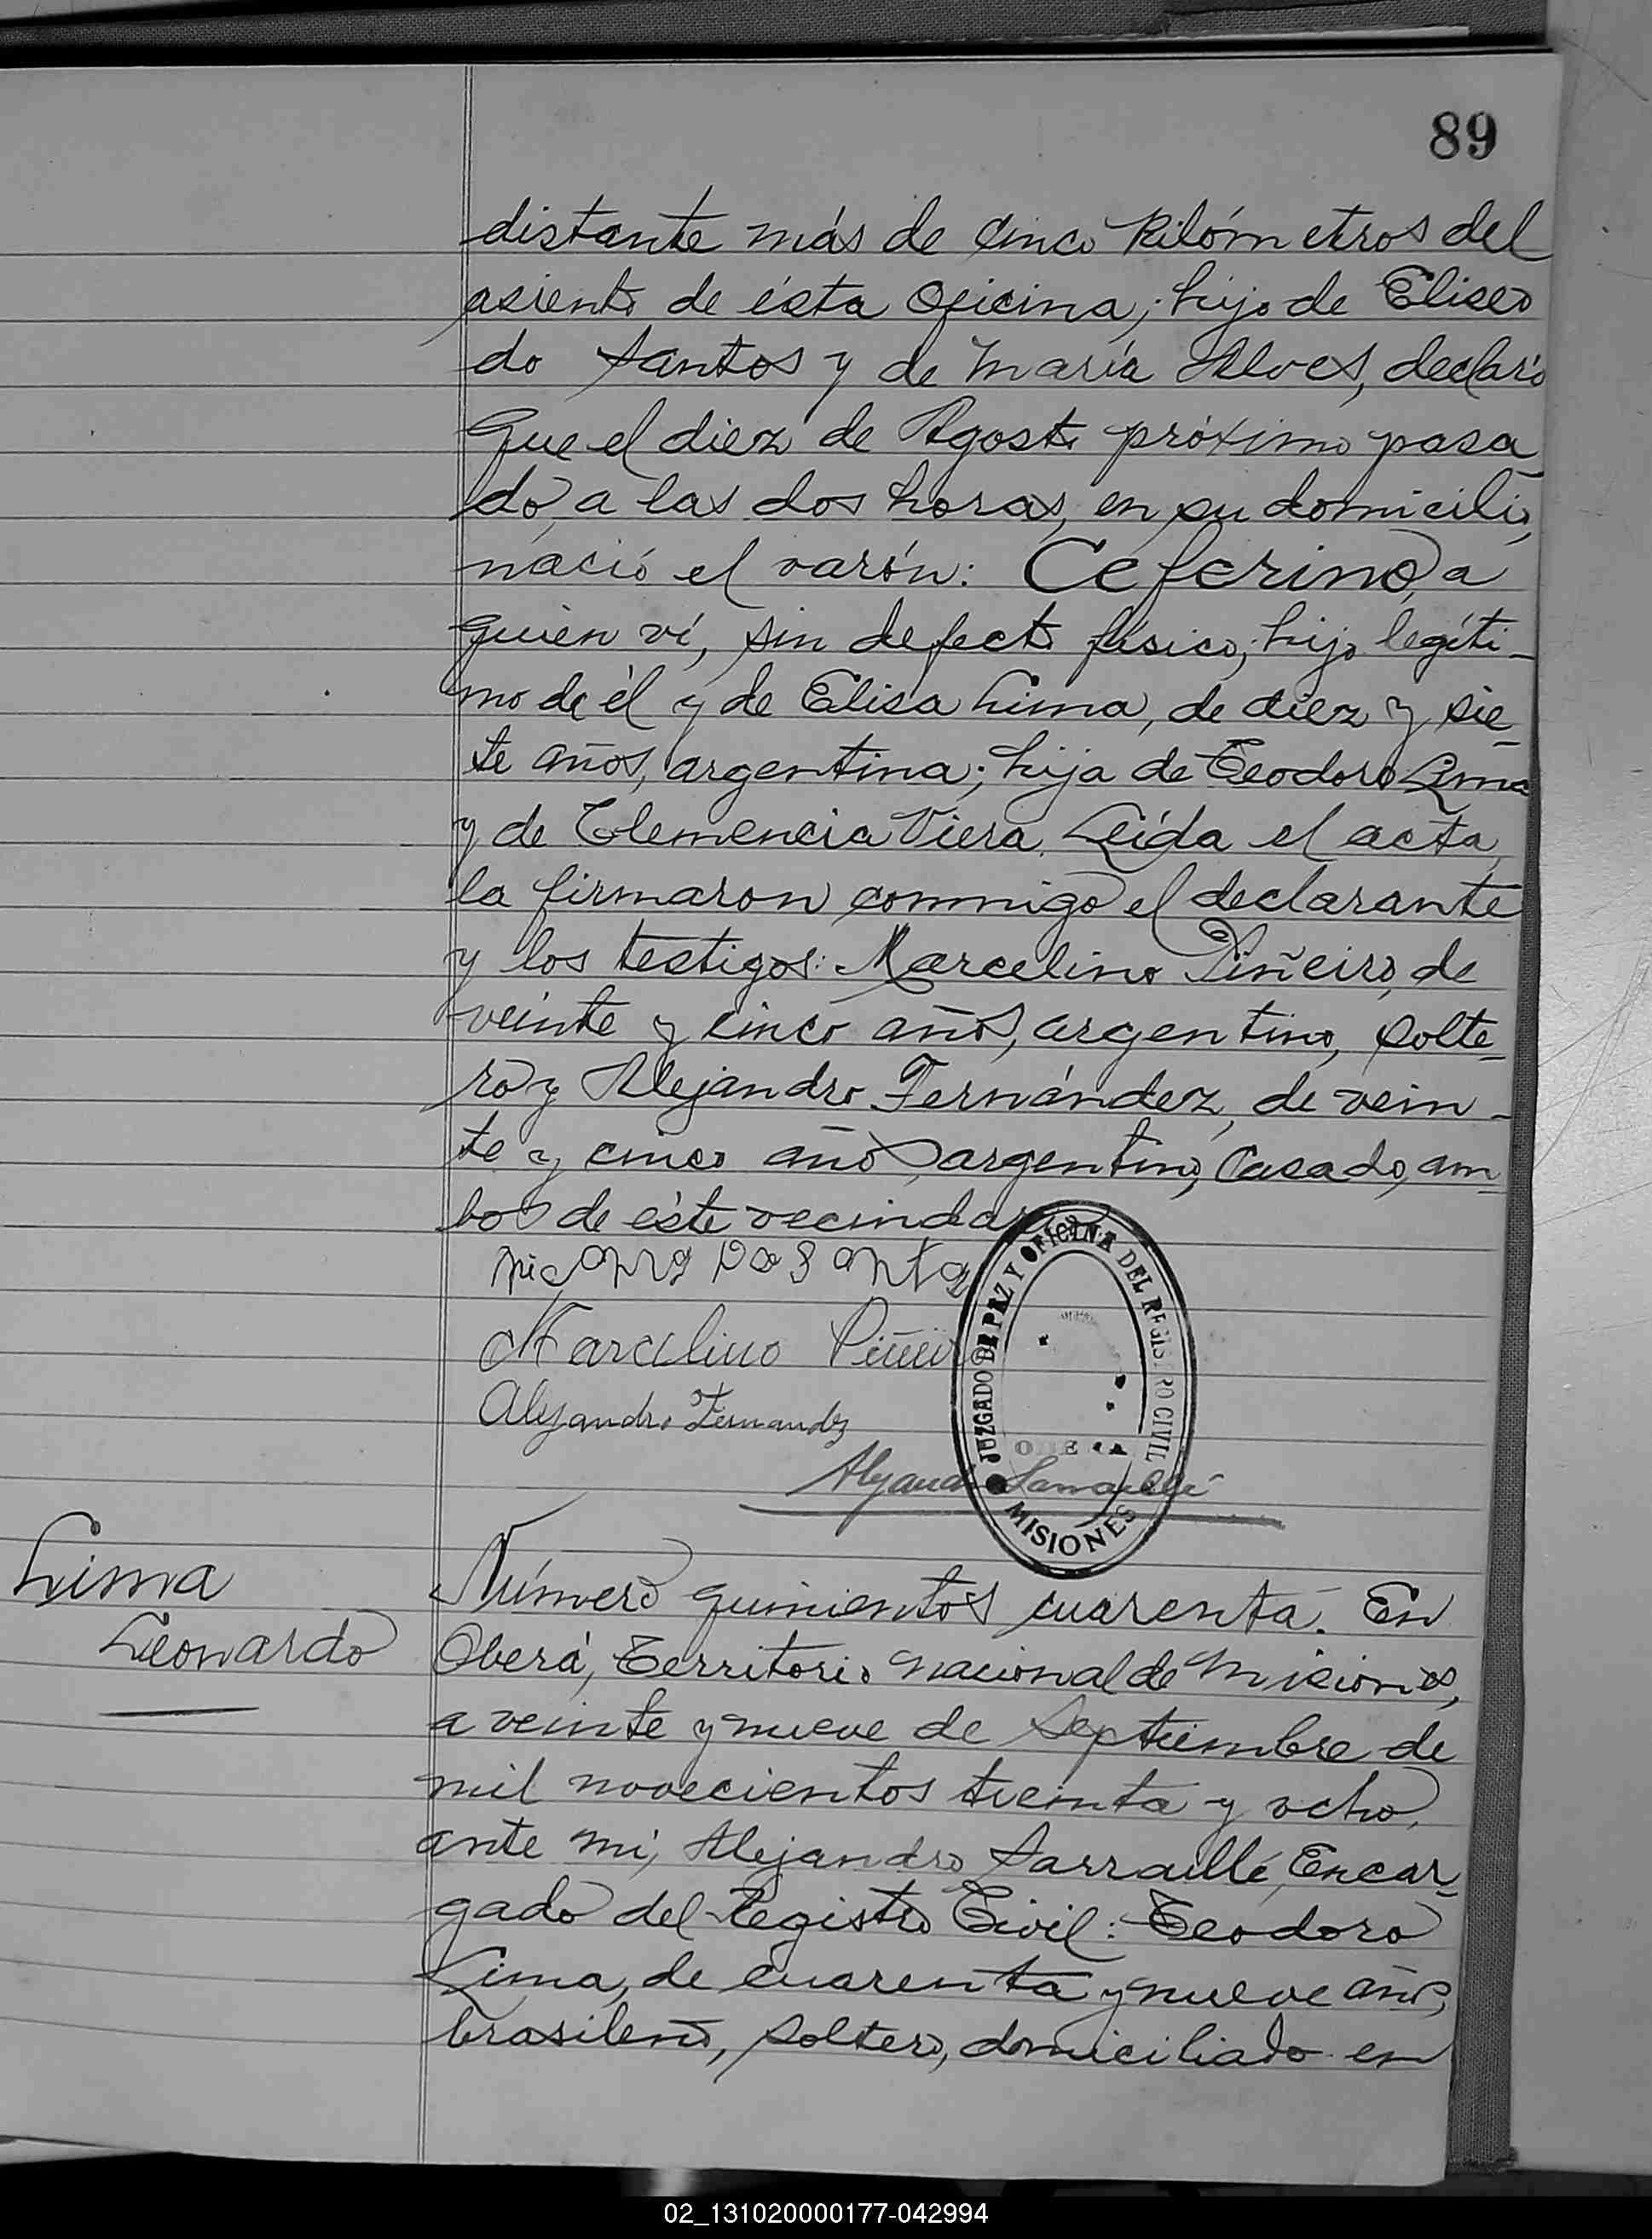 89
distante más de cinco kilómetros del
asiento de ésta Oficina; hijo de Eliseo
do Santos y de María Alves, declaró
que el diez de Agosto próximo pasa
do, a las dos horas, en su domicilio,
nació el varón: Ceferino, a
quien ví, sin defecto físico; hijo legíti-
mo de él y de Elisa Lima, de diez y sie-
te años, argentina; hija de Teodoro Lima
y de Clemencia Viera. Leída el acta,
la firmaron conmigo el declarante
y los testigos: Marcelino Piñeiro, de
veinte y cinco años, argentino, solte-
ro y Alejandro Fernández, de vein-
te y cinco años, argentino, casado, am-
bos de éste vecindario
Marcelino Piñeiro
Alejandro Fernandez
JUZGADO DE PAZ Y OFICINA DEL REGISTRO CIVIL
OBERA
MISIONES
Alejandro Sarraillé
Lima
Leonardo
Número quinientos cuarenta. En
Oberá, Territorio nacional de Misiones,
a veinte y nueve de Septiembre de
mil novecientos treinta y ocho,
ante mí, Alejandro Sarraillé, Encar-
gado del Registro Civil: Teodoro
Lima, de cuarenta y nueve años,
brasileño, soltero, domiciliado en
02_131020000177-042994